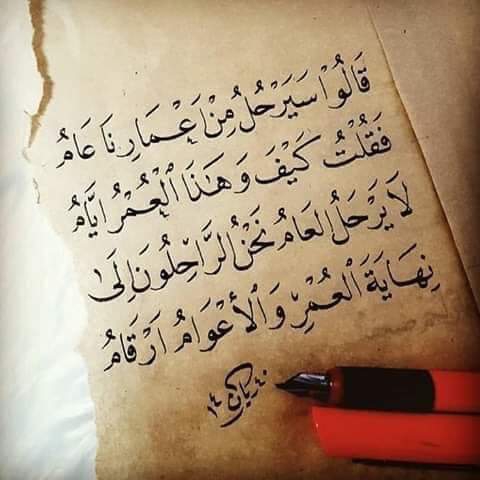 قَالُوْا سَيَرْحُلُ مِنْ إَعْمَارِنَا عَامُ
فَقُلْتُ كَيْفَ وَهٰذَا الْعُمْرُ ايَّامُ
لَا يَرْحَلُ العَامُ نَحْنُ الرَّاحِلُونَ اِلَىٰ
نِهَايَةَ العُمْرِ وَالأعْوَامُ اَرْقَامُ